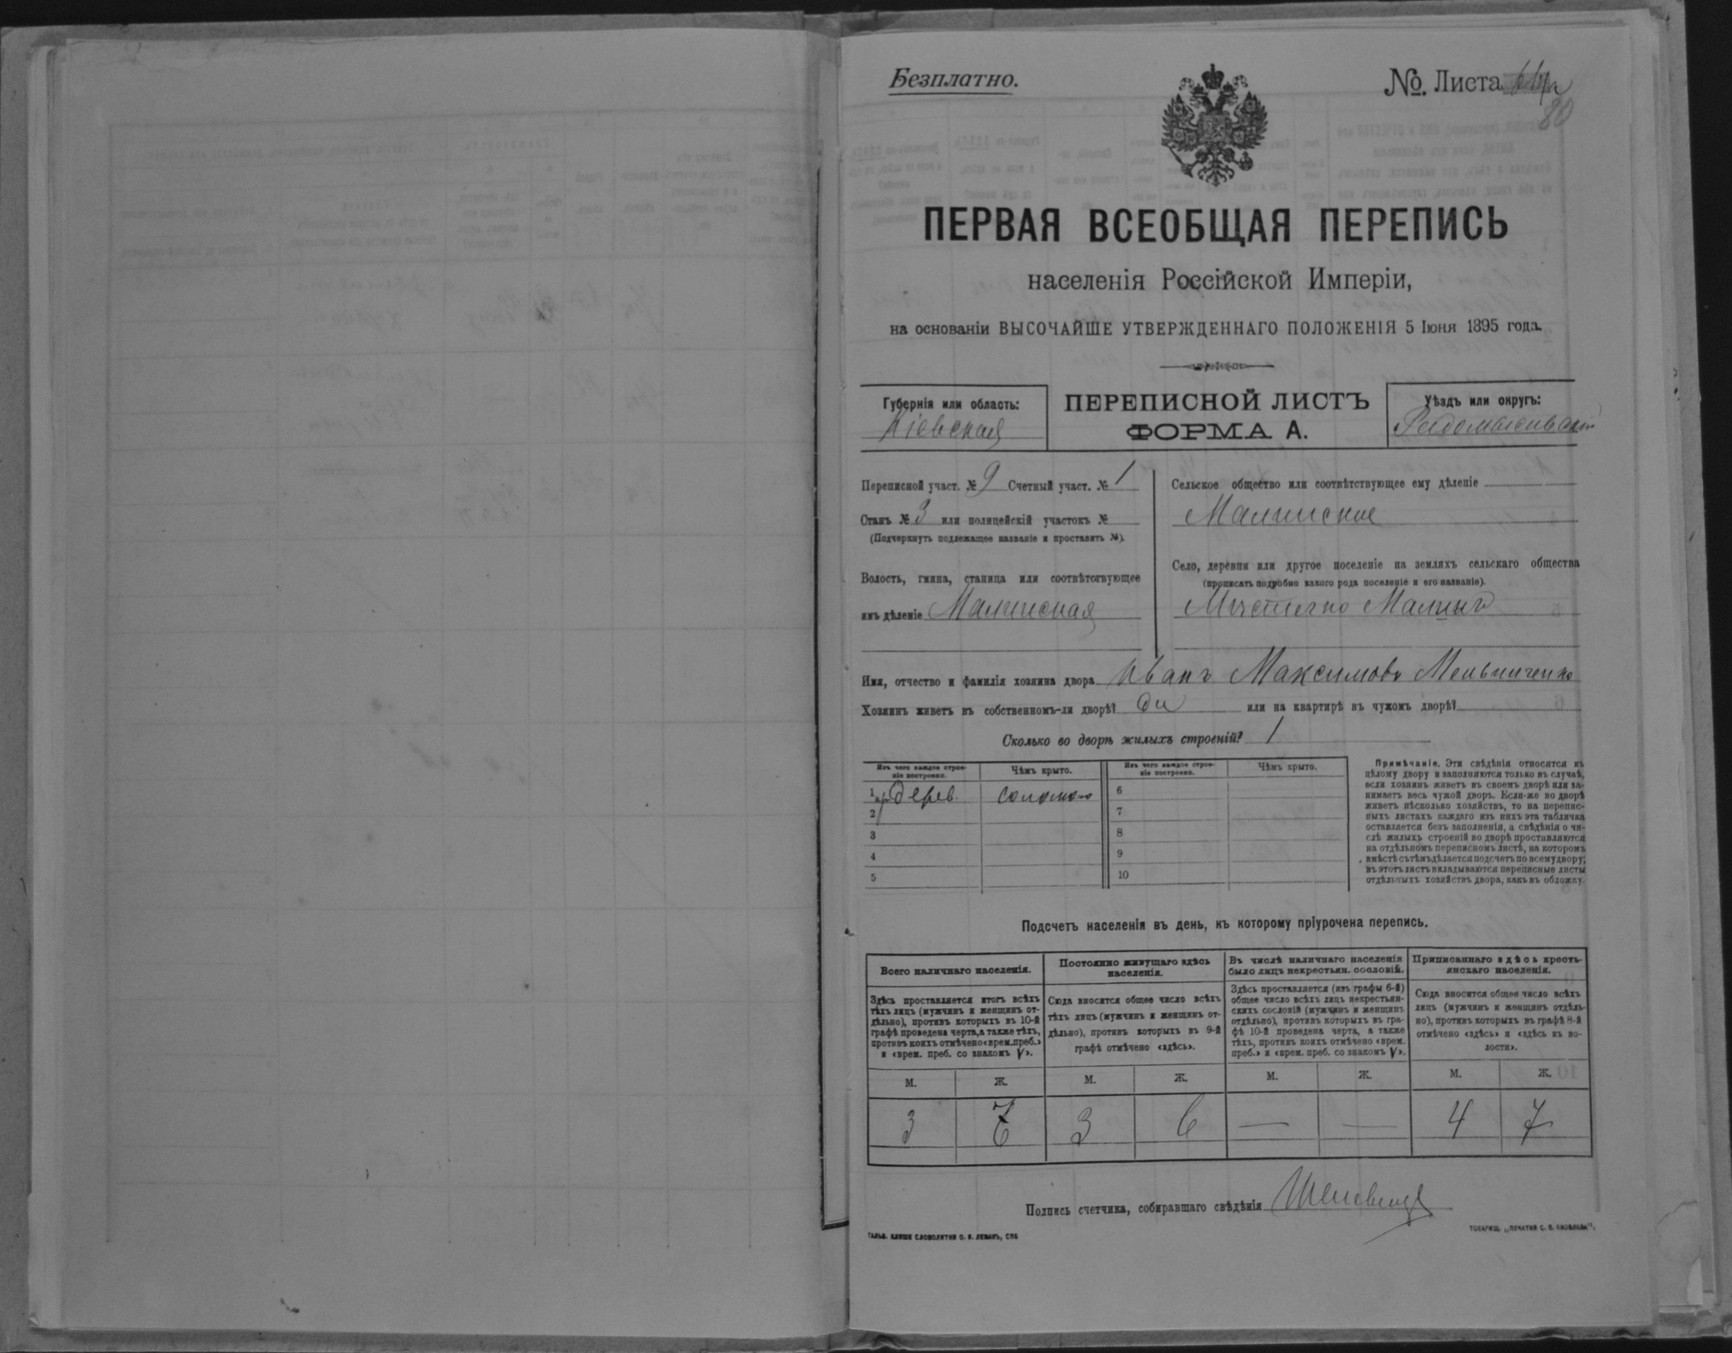 Безплатно.
№ Листа
80
ПЕРВАЯ ВСЕОБЩАЯ ПЕРЕПИСЬ
населенія Россійской Имперіи,
на основаніи ВЫСОЧАЙШЕ УТВЕРЖДЕННАГО ПОЛОЖЕНІЯ 5 Іюня 1895 года.
Губернія или область:
Кіевская
ПЕРЕПИСНОЙ ЛИСТЪ
ФОРМА А.
Уѣздъ или округъ:
Радомысльскій
Переписной участ. № 9 Счетный участ. № 1
Станъ № 3 или полицейскій участокъ №
(Подчеркнуть подлежащее названіе и проставить №).
Волость, гмина, станица или соотвѣтствующее
имъ дѣленіе Малинская
Сельское общество или соотвѣтствующее ему дѣленіе
Малинское
Село, деревня или другое поселеніе на земляхъ сельскаго общества
(прописать подробно какого рода поселеніе и его названіе).
Мѣстечко Малинъ
Имя, отчество и фамилія хозяина двора Иванъ Максимовъ Мельниченко
Хозяинъ живетъ въ собственномъ-ли дворѣ? или на квартирѣ въ чужомъ дворѣ?
Сколько во дворѣ жилыхъ строеній? 1
Изъ чего каждое строеніе построено.
Чѣмъ крыто.
Изъ чего каждое строеніе построено.
Чѣмъ крыто.
1 дерев. соломою 6
2 7
3 8
4 9
5 10
Примѣчаніе. Эти свѣдѣнія относятся къ
цѣлому двору и заполняются только въ случаѣ,
если хозяинъ живетъ въ своемъ дворѣ или за-
нимаетъ весь чужой дворъ. Если-же во дворѣ
живетъ нѣсколько хозяйствъ, то на перепис-
ныхъ листахъ каждаго изъ нихъ эта табличка
оставляется безъ заполненія, а свѣдѣнія о чи-
слѣ жилыхъ строеній во дворѣ проставляются
на отдѣльномъ переписномъ листѣ, на которомъ
вмѣстѣ съ тѣмъ дѣлается подсчетъ по всему двору;
въ этотъ листъ вкладываются переписные листы
отдѣльныхъ хозяйствъ двора, какъ въ обложку.
Подсчетъ населенія въ день, къ которому пріурочена перепись.
Всего наличнаго населенія.
Здѣсь проставляется итогъ всѣхъ
тѣхъ лицъ (мужчинъ и женщинъ от-
дѣльно), противъ которыхъ въ 10-й
графѣ проведена черта, а также тѣхъ,
противъ коихъ отмѣчено «врем. преб.»
и «врем. преб. со знакомъ V».
Постоянно живущаго здѣсь
населенія.
Сюда вносится общее число всѣхъ
тѣхъ лицъ (мужчинъ и женщинъ от-
дѣльно), противъ которыхъ въ 9-й
графѣ отмѣчено «здѣсь».
Въ числѣ наличнаго населенія
было лицъ некрестьян. сословій.
Здѣсь проставляется (изъ графы 6-й)
общее число всѣхъ лицъ некрестьян-
скихъ сословій (мужчинъ и женщинъ
отдѣльно), противъ которыхъ въ гра-
фѣ 10-й проведена черта, а также
тѣхъ, противъ коихъ отмѣчено «врем.
преб.» и «врем. преб. со знакомъ V».
Приписаннаго здѣсь кресть-
янскаго населенія.
Сюда вносится общее число всѣхъ
лицъ (мужчинъ и женщинъ отдѣль-
но), противъ которыхъ въ графѣ 8-й
отмѣчено «здѣсь» и «здѣсь въ во-
лости».
М. Ж. М. Ж. М. Ж. М. Ж.
3 7 3 6 — — 4 7
Подпись счетчика, собиравшаго свѣдѣнія
ГАЛЬВ. КЛИШЕ СЛОВОЛИТНИ О. И. ЛЕМАНЪ, СПБ
ТОВАРИЩ. „ПЕЧАТНЯ С. П. ЯКОВЛЕВА".